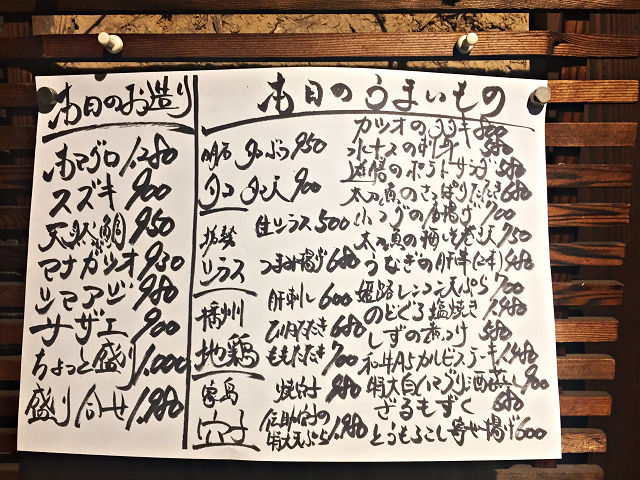 本日のお造り
本マグロ 1,280
スズキ 900
天然鯛 950
マナガツオ 930
シマアジ 980
サザエ 900
ちょっと盛り 1,000
盛り合せ 1,980
本日のうまいもの
明石タコ
タコぶつ 950
タコ天 900
生シラス 500
シラス
つまみ揚げ 680
播州地鶏
肝刺し 600
ももたたき 700
穴子
焼穴子 980
伝助穴子の特大天ぷら 1,980
カツオのタタキ
水ナスの刺身 580
ポテトサラダ 580
太刀魚のさっぱりたたき 680
唐揚げ 700
うなぎの肝串(2本) 480
姫路レンコン天ぷら 700
のどぐろ塩焼き 1,480
もずの煮つけ 580
和牛A5カルビステーキ 1,480
特大白ハマグリ酒蒸し 900
ざるもずく 580
とうもろこし寄せ揚げ 600